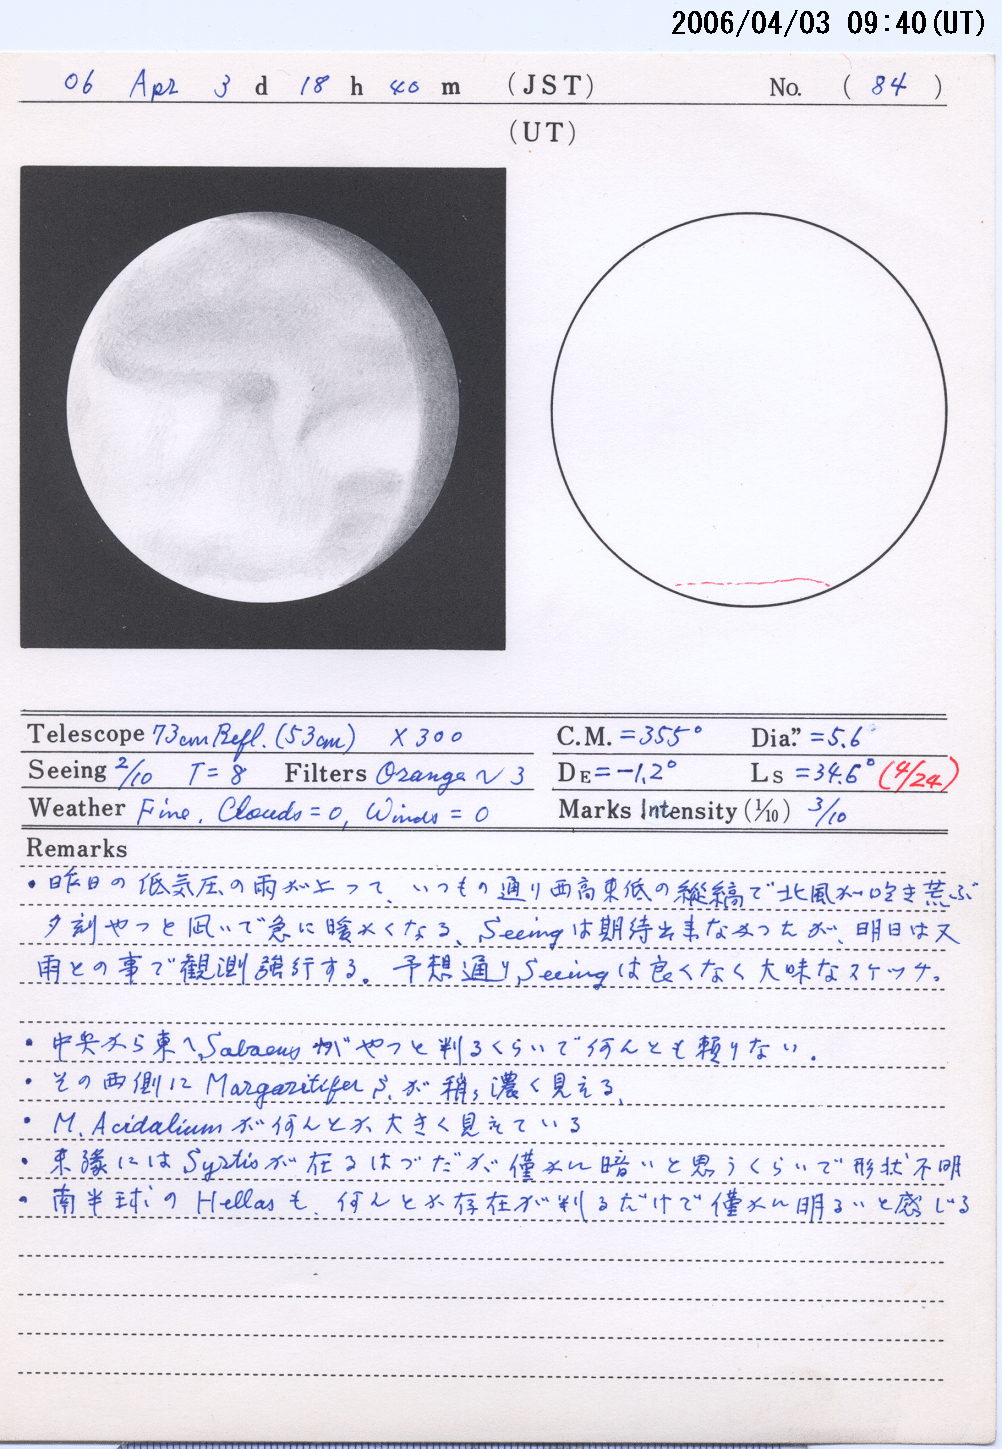 2006/04/03 09:40(UT)
06 Apr 3 d 18 h 40 m (JST) No. (84)
(UT)
Telescope 73cm Refl. (53cm) ×300 C.M. =355° Dia." =5.6"
Seeing 2/10 T=8 Filters Orange ~ 3 DE=-1.2° Ls =34.6° (4/24)
Weather Fine, Clouds=0, Winds=0 Marks Intensity (1/10) 3/10
Remarks
・昨日の低気圧の雨が上って、いつもの通り西高東低の縦縞で北風が吹き荒ぶ
夕刻やっと凪いで急に暖かくなる、Seeingは期待出来なかったが、明日は又
雨との事で観測強行する。予想通り、Seeingは良くなく大味なスケッチ。
・中央から東へ、Sabaeusがやっと判るくらいで何んとも頼りない.
・その西側にMargaritifer S.が稍々濃く見える、
・M. Acidaliumが何んとか大きく見えている
・東縁にはSyrtisが在るはづだが僅かに暗いと思うくらいで形状不明
・南半球のHellasも、何んとか存在が判るだけで僅かに明るいと感じる